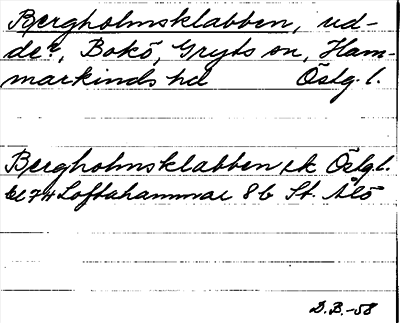 Bergholmsklabben, ud-
de?, Bokö, Gryts sn, Ham-
markinds hd Östg. l.
Bergholmsklabben ek Östg. l.
bl 74 Loftahammar 8 b St. Älö
D.B.-58